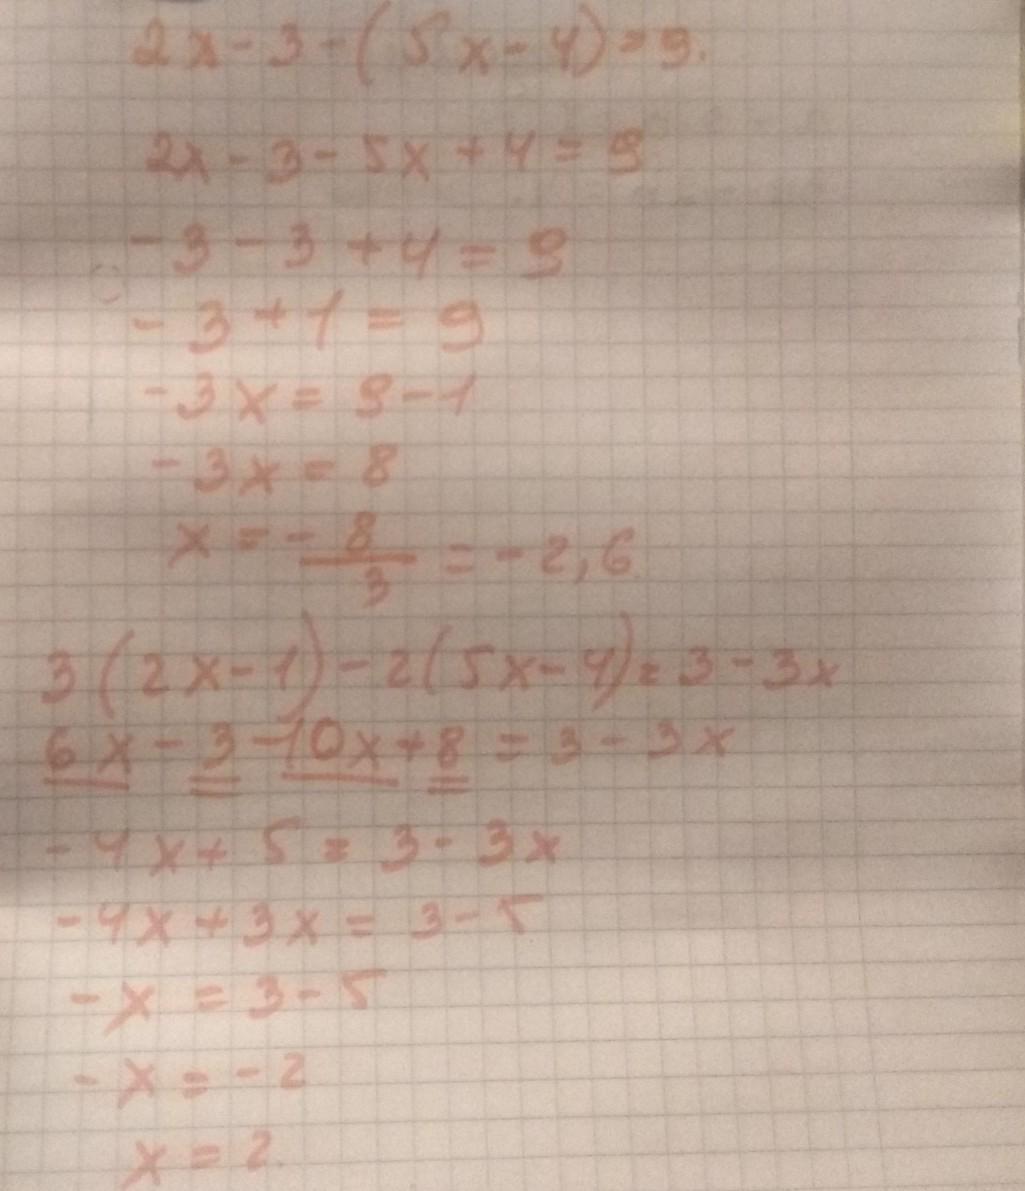 2x - 3 - (5x - 4) = 9.
2x - 3 - 5x + 4 = 9
- 3 - 3 + 4 = 9
- 3 + 1 = 9
- 3x = 9 - 1
- 3x = 8
x = - 8/3 = - 2,6
3(2x - 1) - 2(5x - 4) = 3 - 3x
6x - 3 - 10x + 8 = 3 - 3x
- 4x + 5 = 3 - 3x
- 4x + 3x = 3 - 5
- x = 3 - 5
- x = - 2
x = 2.